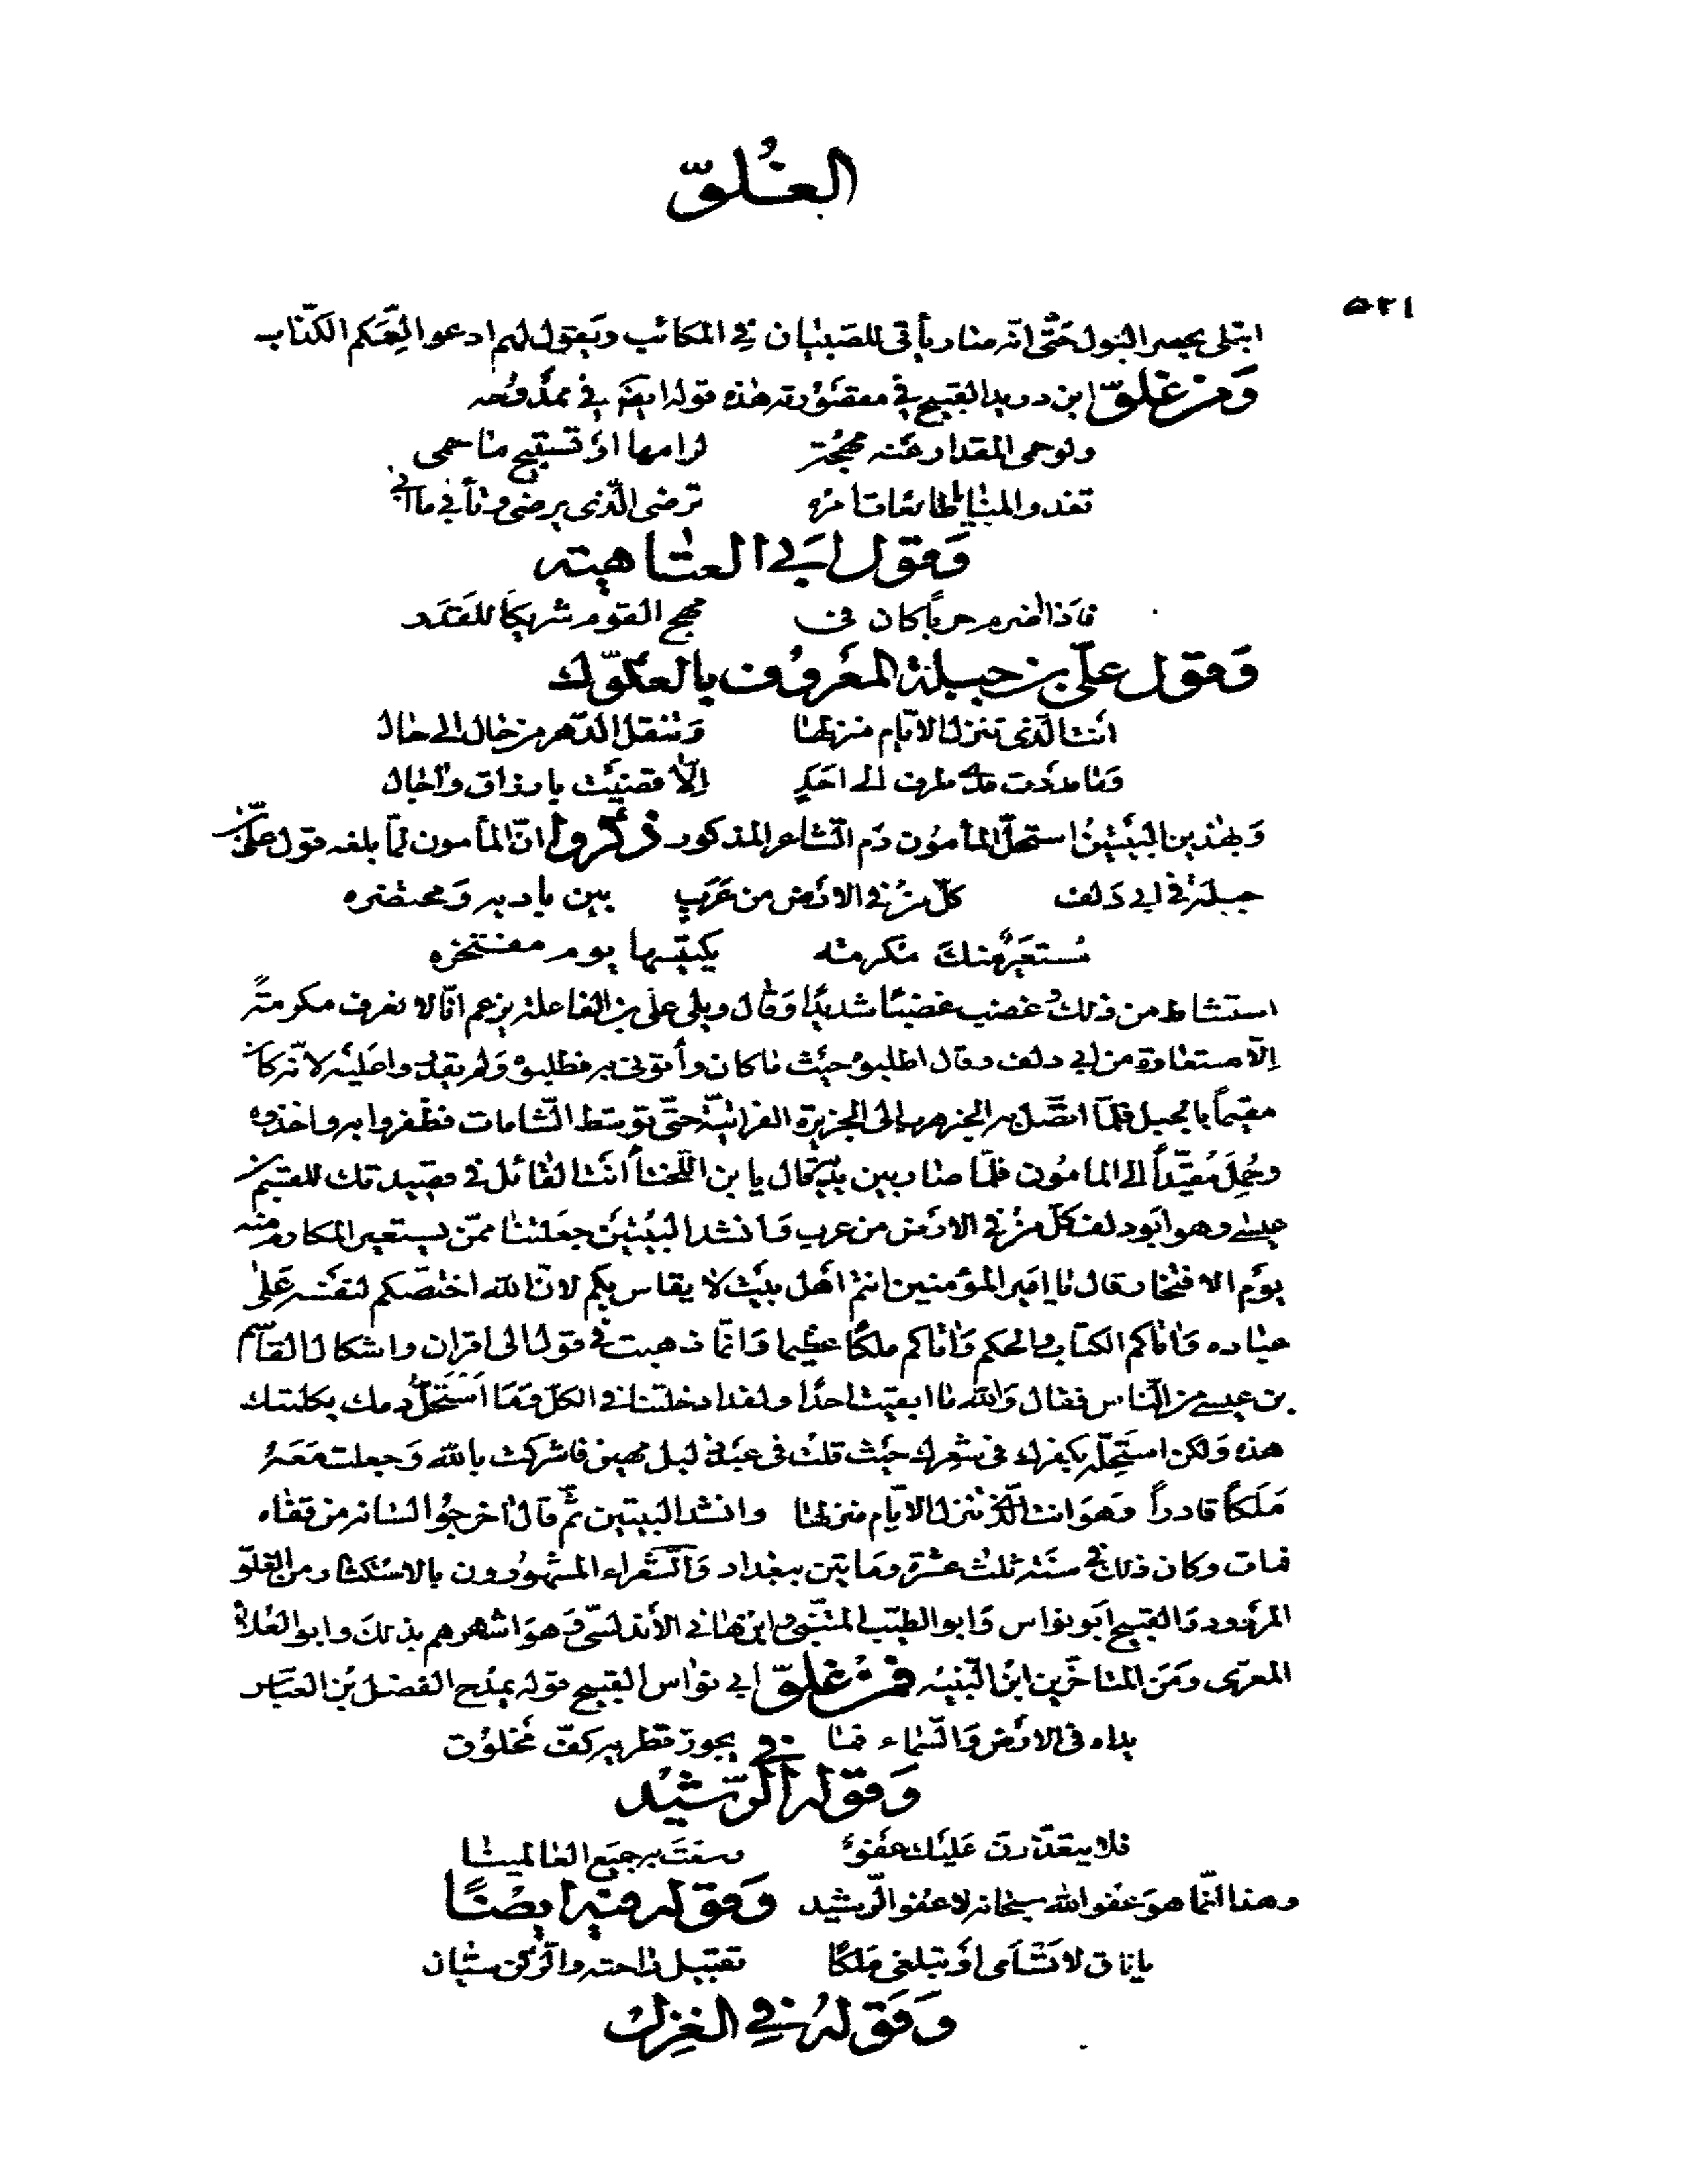 الغلوّ
٥٢١
ابتلى بحصر البول حَتّى انّه صار يأتى للصبيان فى المكاتب ويَقول لهم ادعوا لِعَمّكم الكذّاب
وَمن غلوّ ابن دريد القبيح فى مقصُورته هذه قوله ايضًا فى ممدُوحه
ولو حمى المقدار عَنه مهجُة لرامها او تستبيح مَا حمى
تغدو المنايا طائعات امره ترضى الّذى يرضى وتأبى ما ابى
وَقول ابى العتاهية
فاذا اضرم حرباً كان فى مهج القوم شريكَا للقَدَر
وَقول علىّ بن جبلة المعرُوف بالعكوّك
انت الّذى تنزل الايّام منزلها وَتنقل الدّهر من حال الى حال
وَمَا مددت مدى طرف الى احَدٍ الاّ قضيت بارزاق وآجال
وَبهذين البَيتين استحلّ المأمون دَم الشاعر المذكور ذكروا انّ المأمون لمّا بلغه قول علىّ بن
جبلة فى ابى دَلف كلّ من فى الارض من عَرَبٍ بين باديه وَمحتضره
مُستعَيرٌ منكَ مَكرمة يكتسيها يوم مفتخره
استشاط من ذلك وغضب غضبًا شديدًا وَقال ويلى على بن الفاعلة يزعم انّا لا نعرف مكرمةً
الاّ مستعارة من ابى دلف وقال اطلبوه حيث مَا كان وأتونى به فطلبوه وَلم يقدروا عَليه لانّه كان
مقيماً بالجبل فلمّا اتّصل به الخبر هرب الى الجزيرة الفراتيّة حتّى توسّط الشّامات فظفروا به واخذوه
وحُمِلَ مُقيّداً الى المامُون فلمّا صار بين يديه قال يا بن اللّخناء أنت القائل فى قصيدتك للقسم بن
عيسى وهو ابَو دلف كلّ من فى الارض من عرب وَانشد البَيتين جعَلتنا ممّن يستعير المكارم منه
يوَم الافتخار قال يا امَير المؤمنين انتم اهل بيت لا يقاس بكم لانّ الله اختصّكم لنفسه عَلى
عباده وَآتاكم الكتاب والحكم وَآتاكم ملكًا عظيما وَانّما ذهبت فى قولى الى اقران واشكال القاسم
بن عيسى من النّاس فقال وَالله ما ابقيت احدًا ولقد ادخلتنا فى الكلّ وَمَا اَستَحلّ دمك بكلمتك
هذه وَلكن استَحِلّه بكفرك فى شعرك حيث قلت فى عَبد ذليل مهين فاشركت بالله وَجعلت مَعَهُ
مَلَكاً قادراً وَهوَ انت الّذى تنزل الايّام منزلها وانشد البيتين ثمّ قال اخرجُوا لسانه من قفاه
فمات وكان ذلك فى سَنة ثلث عشرة ومَايتين ببغداد وَالشّعراء المشهُورون بالاستكثار من الغلوّ
المردود وَالقبيح ابَو نواس وَابو الطيّب المتنبّى وابن هانى الأندلسّى وَهوَ اشهرهم بذلكَ وابو العُلاء
المعرّى وَمَن المتاخّرين ابنُ النّبيه فمن غلوّ ابى نوَاس القبيح قوله يمَدح الفضل بُن العبَاس
يداه فى الارض وَالسّماء فما فى يجوز قطريه كفّ مخلوُق
وَقوله الرّشيد
فلا يتعذّرن عَليك عفوُ وسعَت به جمَيع العالمينا
وهذا انّما هوَ عفو الله سبحانه لا عفو الرّشيد وَقوله فيه ايضًا
يا ناق لا تسَأمى او تبلغى مَلكًا تقبيل راحته والرّكن سيّان
وَقولهُ فى الغزل